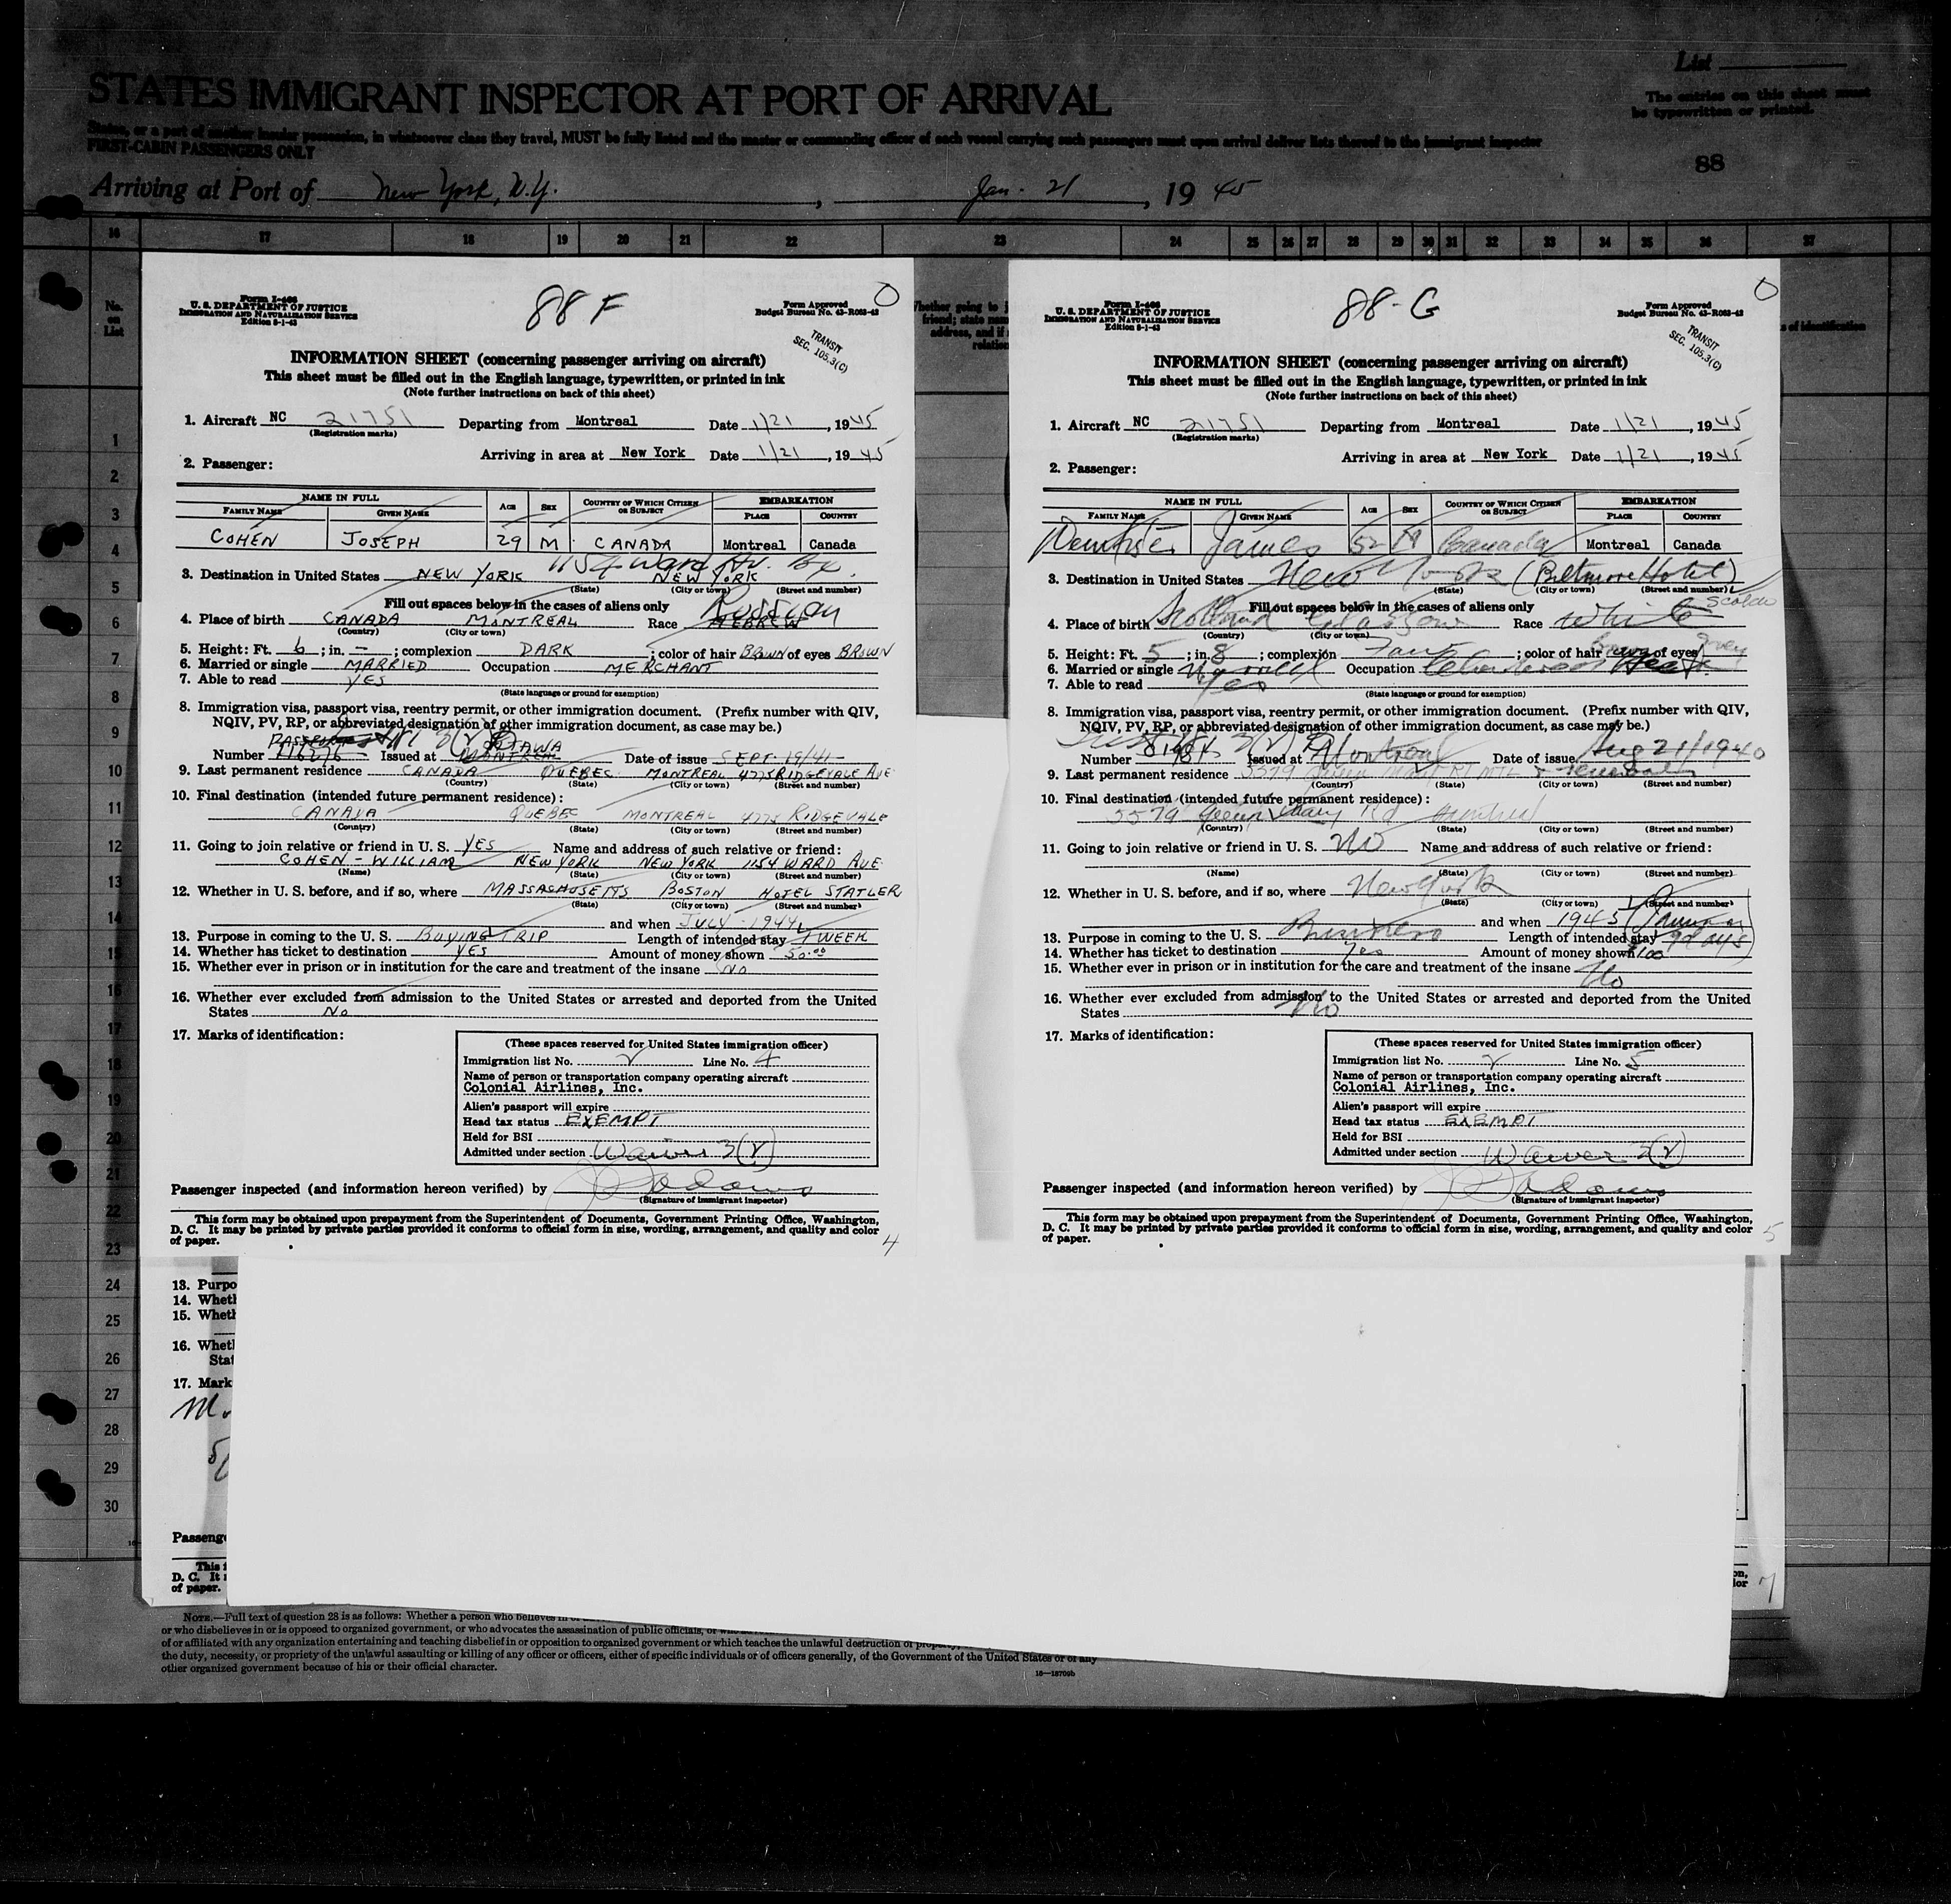 List
STATES IMMIGRANT INSPECTOR AT PORT OF ARRIVAL
The entries on this sheet must
be typewritten or printed.
States, or a part of another insular possession, in whatsoever class they travel, MUST be fully listed and the master or commanding officer of each vessel carrying such passengers must upon arrival deliver lists thereof to the immigrant inspector
FIRST-CABIN PASSENGERS ONLY
88
Arriving at Port of New York, N.Y., Jan. 21, 19 45
16 17 18 19 20 21 22 23 24 25 26 27 28 29 30 31 32 33 34 35 36 37
No.
on
List
1
2
3
4
5
6
7
8
9
10
11
12
13
14
15
16
17
18
19
20
21
22
23
24
25
26
27
28
29
30
Form I-466
U. S. DEPARTMENT OF JUSTICE
IMMIGRATION AND NATURALIZATION SERVICE
Edition 8-1-43
88 F
Form Approved
Budget Bureau No. 43-R063-42
TRANSIT
SEC. 105.3(C)
INFORMATION SHEET (concerning passenger arriving on aircraft)
This sheet must be filled out in the English language, typewritten, or printed in ink
(Note further instructions on back of this sheet)
1. Aircraft NC 21751 Departing from Montreal Date 1/21, 1945
(Registration marks)
Arriving in area at New York Date 1/21, 1945
2. Passenger:
NAME IN FULL AGE SEX COUNTRY OF WHICH CITIZEN OR SUBJECT EMBARKATION
FAMILY NAME GIVEN NAME PLACE COUNTRY
COHEN JOSEPH 29 M CANADA Montreal Canada
1154 Ward Av. Bx.
3. Destination in United States NEW YORK NEW YORK
(State) (City or town) (Street and number)
Fill out spaces below in the cases of aliens only
Russian
4. Place of birth CANADA MONTREAL Race HEBREW
(Country) (City or town)
5. Height: Ft. 6; in. –; complexion DARK; color of hair BROWN of eyes BROWN
6. Married or single MARRIED Occupation MERCHANT
7. Able to read YES
(State language or ground for exemption)
8. Immigration visa, passport visa, reentry permit, or other immigration document. (Prefix number with QIV,
NQIV, PV, RP, or abbreviated designation of other immigration document, as case may be.)
PASSPORT 3(2) OTTAWA
Number 116276 Issued at MONTREAL Date of issue SEPT. 19/41
9. Last permanent residence CANADA QUEBEC MONTREAL 4775 RIDGEVALE AVE
(Country) (State) (City or town) (Street and number)
10. Final destination (intended future permanent residence):
CANADA QUEBEC MONTREAL 4775 RIDGEVALE
(Country) (State) (City or town) (Street and number)
11. Going to join relative or friend in U. S. YES Name and address of such relative or friend:
COHEN - WILLIAM NEW YORK NEW YORK 1154 WARD AVE.
(Name) (State) (City or town) (Street and number)
12. Whether in U. S. before, and if so, where MASSASHUSETTS BOSTON HOTEL STATLER
(State) (City or town) (Street and number)
and when JULY - 1944
13. Purpose in coming to the U. S. BUYING TRIP Length of intended stay 1 WEEK
14. Whether has ticket to destination YES Amount of money shown 50.00
15. Whether ever in prison or in institution for the care and treatment of the insane NO
16. Whether ever excluded from admission to the United States or arrested and deported from the United
States NO
17. Marks of identification:
(These spaces reserved for United States immigration officer)
Immigration list No. 2 Line No. 4
Name of person or transportation company operating aircraft
Colonial Airlines, Inc.
Alien's passport will expire
Head tax status EXEMPT
Held for BSI
Admitted under section Waiver 3(2)
Passenger inspected (and information hereon verified) by
(Signature of immigrant inspector)
This form may be obtained upon prepayment from the Superintendent of Documents, Government Printing Office, Washington,
D. C. It may be printed by private parties provided it conforms to official form in size, wording, arrangement, and quality and color
of paper.
4
Form I-466
U. S. DEPARTMENT OF JUSTICE
IMMIGRATION AND NATURALIZATION SERVICE
Edition 8-1-43
88-G
Form Approved
Budget Bureau No. 43-R063-42
TRANSIT
SEC. 105.3(C)
INFORMATION SHEET (concerning passenger arriving on aircraft)
This sheet must be filled out in the English language, typewritten, or printed in ink
(Note further instructions on back of this sheet)
1. Aircraft NC 21751 Departing from Montreal Date 1/21, 1945
(Registration marks)
Arriving in area at New York Date 1/21, 1945
2. Passenger:
NAME IN FULL AGE SEX COUNTRY OF WHICH CITIZEN OR SUBJECT EMBARKATION
FAMILY NAME GIVEN NAME PLACE COUNTRY
James 52 M Canada Montreal Canada
3. Destination in United States New York (Biltmore Hotel)
(State) (City or town) (Street and number)
Fill out spaces below in the cases of aliens only
Scotch
4. Place of birth Scotland Glasgow Race White
(Country) (City or town)
5. Height: Ft. 5; in. 8; complexion Fair; color of hair of eyes Grey
6. Married or single Married Occupation
7. Able to read Yes
(State language or ground for exemption)
8. Immigration visa, passport visa, reentry permit, or other immigration document. (Prefix number with QIV,
NQIV, PV, RP, or abbreviated designation of other immigration document, as case may be.)
3(2)
Number Issued at Montreal Date of issue Aug 21/1940
9. Last permanent residence 5579 Queen Mary Rd
(Country) (State) (City or town) (Street and number)
10. Final destination (intended future permanent residence):
5579 Queen Mary Rd
(Country) (State) (City or town) (Street and number)
11. Going to join relative or friend in U. S. No Name and address of such relative or friend:
(Name) (State) (City or town) (Street and number)
12. Whether in U. S. before, and if so, where New York
(State) (City or town) (Street and number)
and when 1943
13. Purpose in coming to the U. S. Business Length of intended stay 9 days
14. Whether has ticket to destination Yes Amount of money shown $100
15. Whether ever in prison or in institution for the care and treatment of the insane No
16. Whether ever excluded from admission to the United States or arrested and deported from the United
States No
17. Marks of identification:
(These spaces reserved for United States immigration officer)
Immigration list No. 2 Line No. 5
Name of person or transportation company operating aircraft
Colonial Airlines, Inc.
Alien's passport will expire
Head tax status EXEMPT
Held for BSI
Admitted under section Waiver 3(2)
Passenger inspected (and information hereon verified) by
(Signature of immigrant inspector)
This form may be obtained upon prepayment from the Superintendent of Documents, Government Printing Office, Washington,
D. C. It may be printed by private parties provided it conforms to official form in size, wording, arrangement, and quality and color
of paper.
5
13. Purpo
14. Wheth
15. Wheth
16. Whet
Stat
17. Mark
M.
Passenge
This f
D. C. It
of paper.
7
NOTE.—Full text of question 28 is as follows: Whether a person who believes in or
or who disbelieves in or is opposed to organized government, or who advocates the assassination of public officials, or who
of or affiliated with any organization entertaining and teaching disbelief in or opposition to organized government or which teaches the unlawful destruction of property,
the duty, necessity, or propriety of the unlawful assaulting or killing of any officer or officers, either of specific individuals or of officers generally, of the Government of the United States or of any
other organized government because of his or their official character.